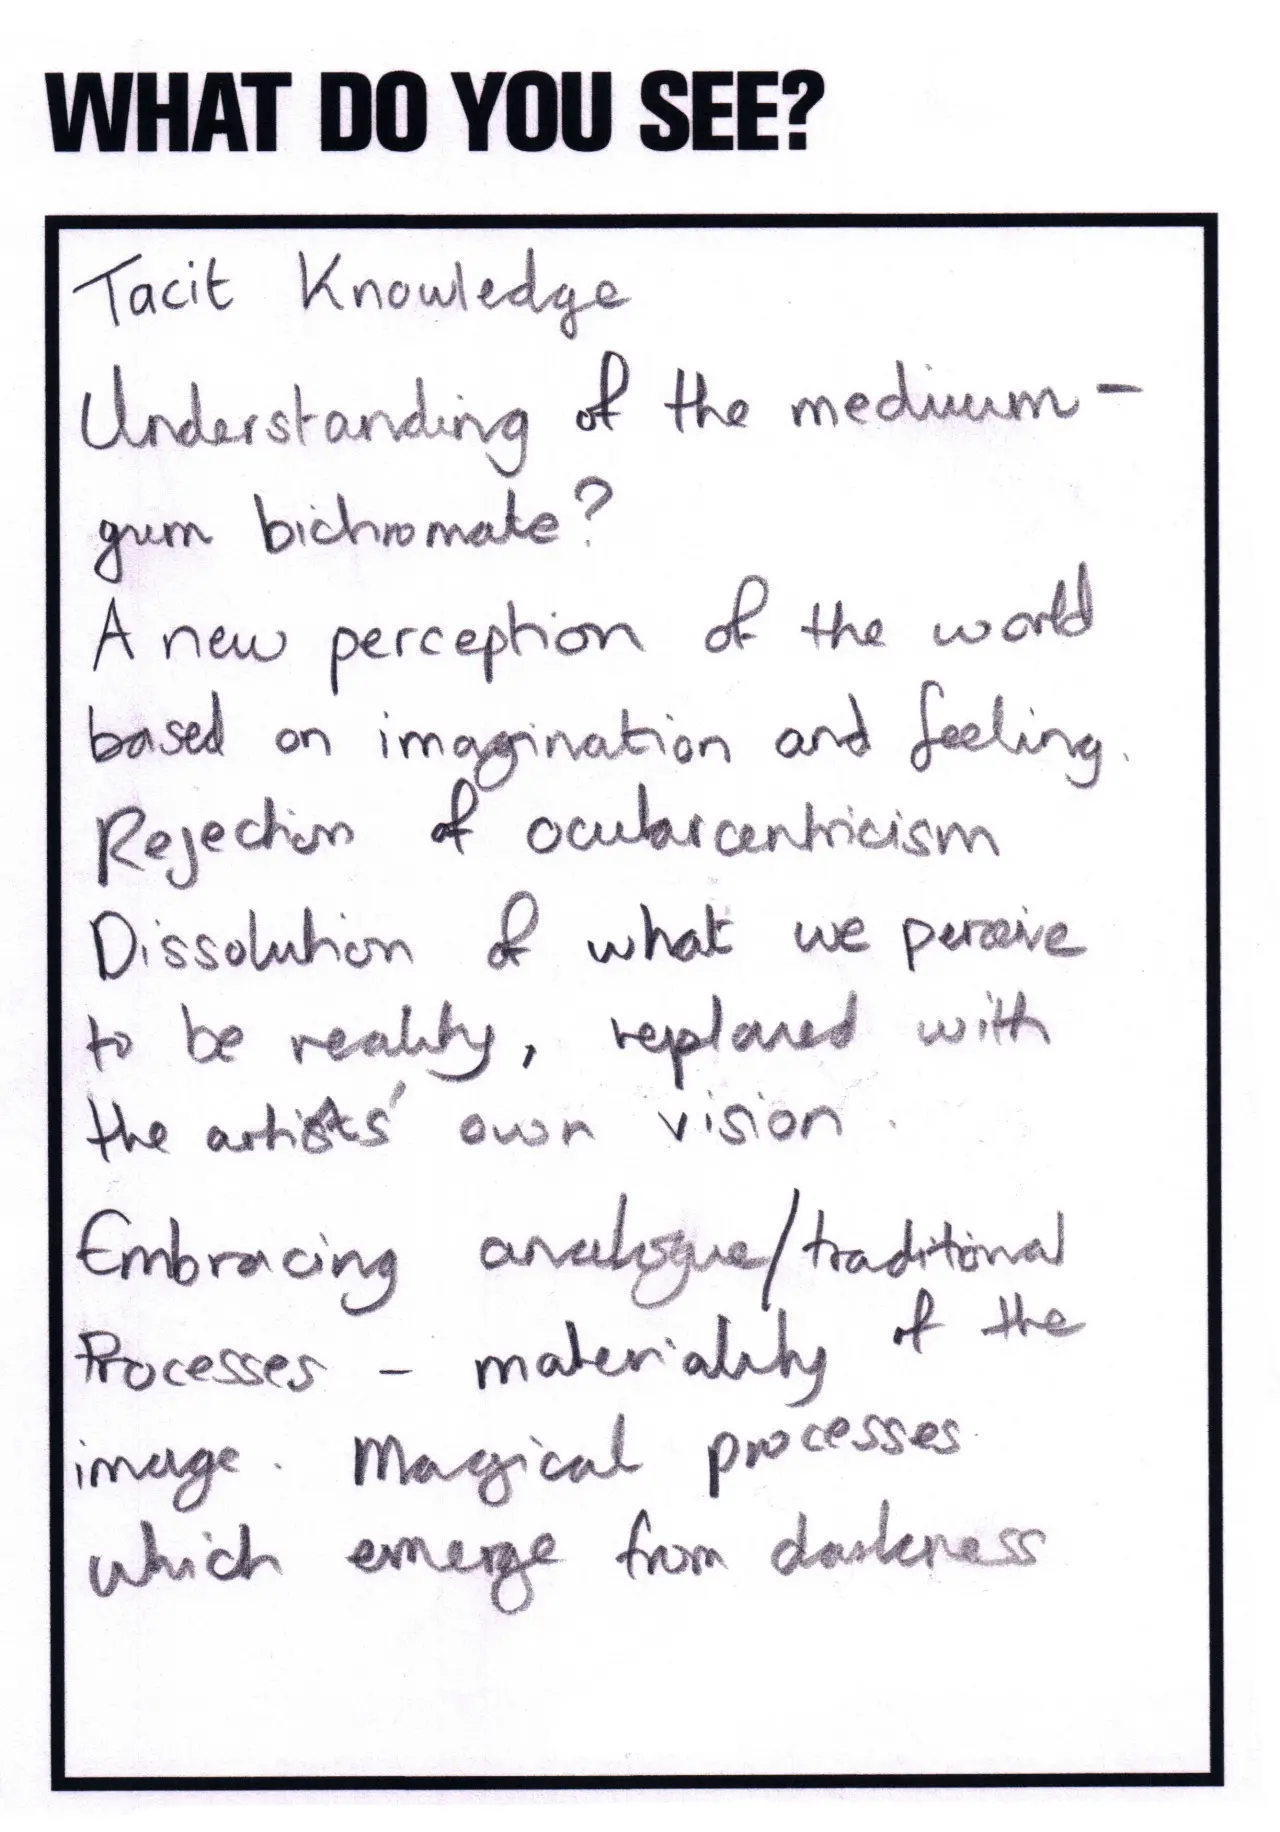 WHAT DO YOU SEE?
Tacit Knowledge
Understanding of the medium -
gum bichromate?
A new perception of the world
based on imagination and feeling.
Rejection of ocularcentricism
Dissolution of what we perceive
to be reality, replaced with
the artists' own vision.
Embracing analogue/traditional
Processes - materiality of the
image. Magical processes
which emerge from darkness